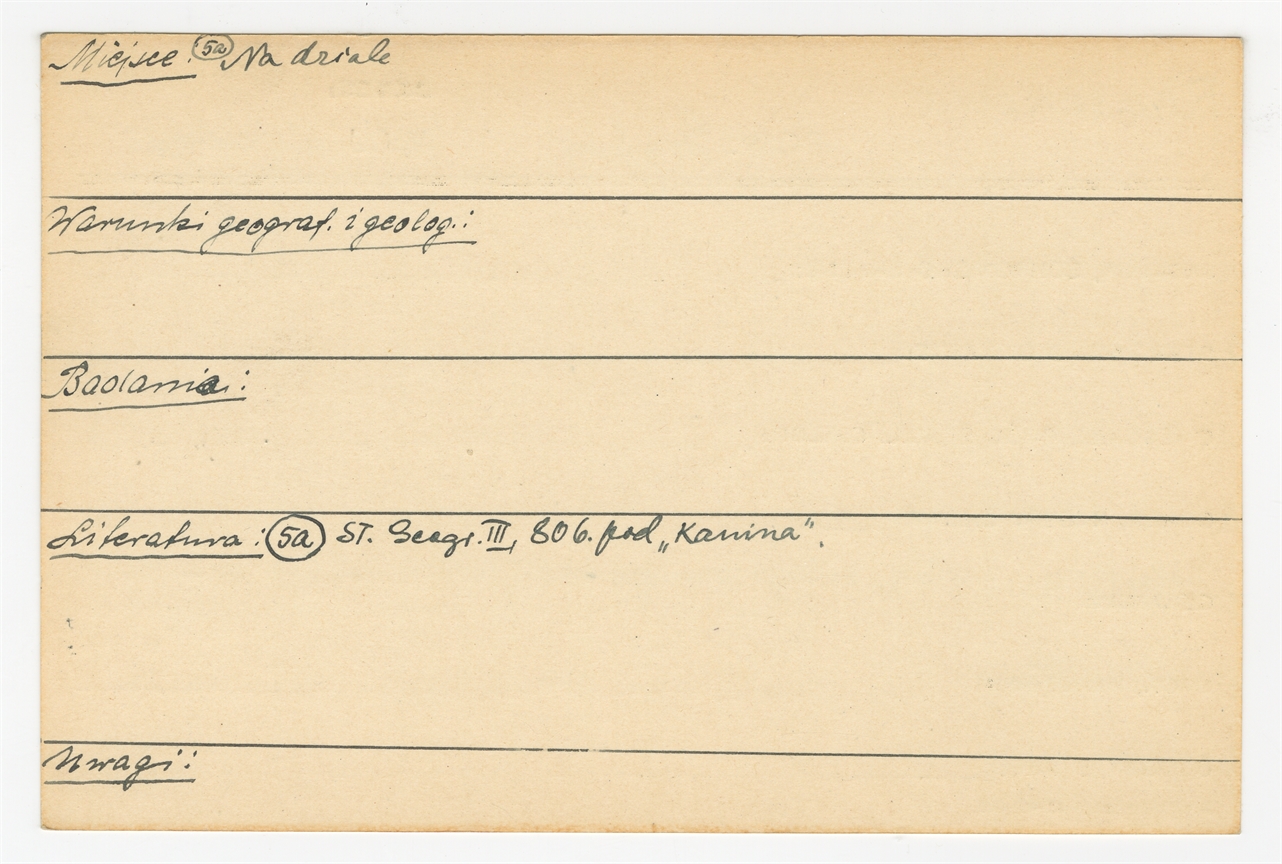 Miejsce: 5a Na dziale
Warunki geograf. i geolog.:
Badania:
Literatura: 5a Sł. Geogr. III, 806. pod „Kanina".
Uwagi: